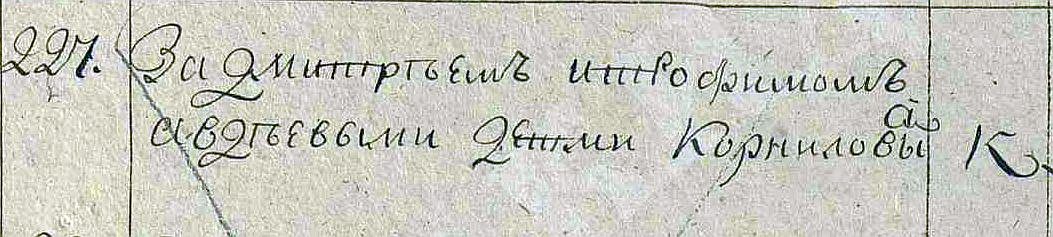 227. За Дмитрѣемъ итрофимомъ
авдѣевыми детми Корниловы К.